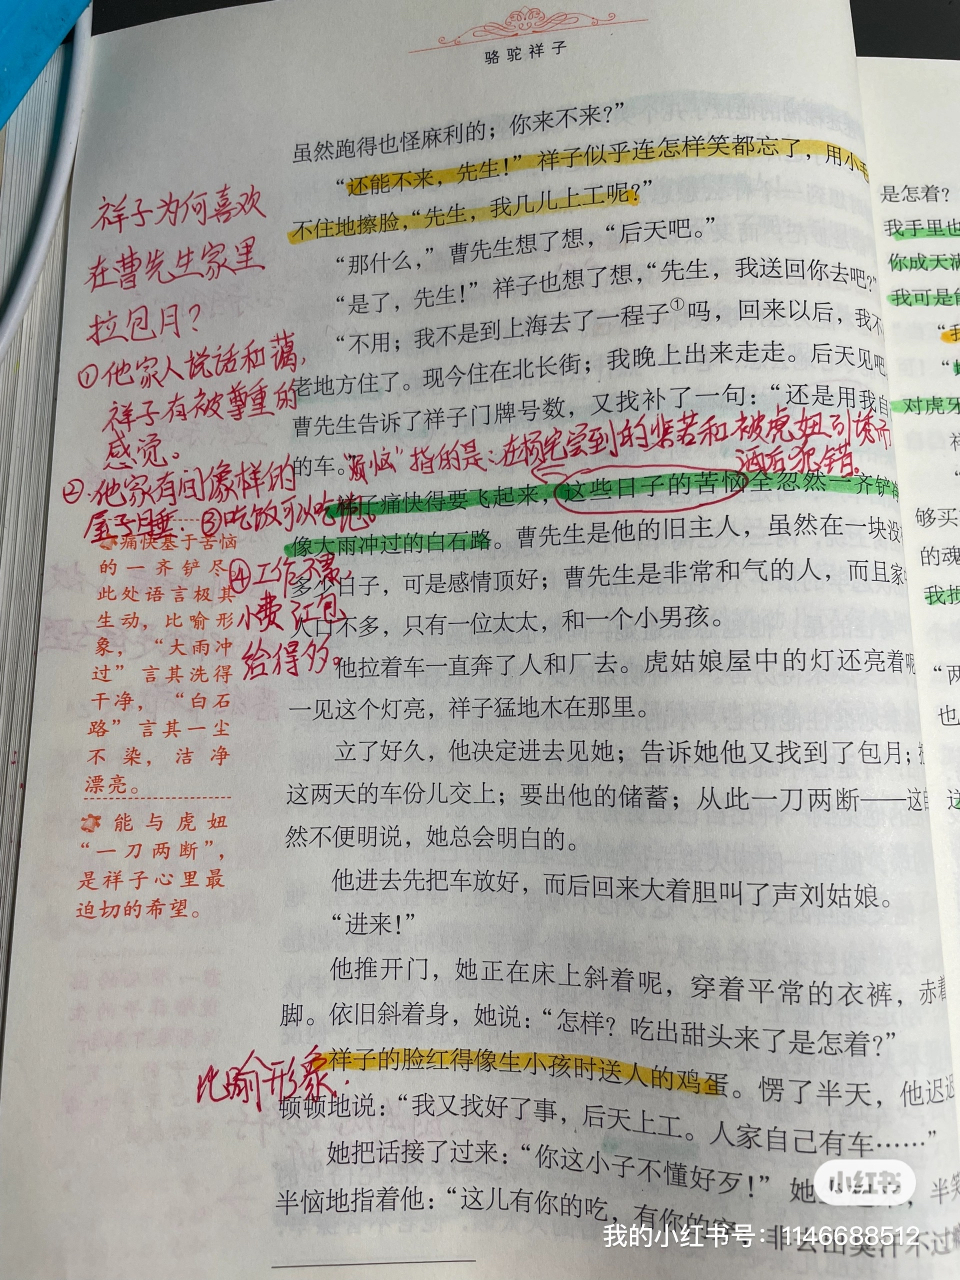 骆驼祥子
虽然跑得也怪麻利的；你来不来？”
“还能不来，先生！”祥子似乎连怎样笑都忘了，用小毛
不住地擦脸，“先生，我几儿上工呢？”
“那什么，”曹先生想了想，“后天吧。”
“是了，先生！”祥子也想了想，“先生，我送回你去吧？”
“不用；我不是到上海去了一程子①吗，回来以后，我不
老地方住了。现今住在北长街；我晚上出来走走。后天见吧
曹先生告诉了祥子门牌号数，又找补了一句：“还是用我自
的车。”
祥子痛快得要飞起来，这些日子的苦恼全忽然一齐铲
像大雨冲过的白石路。曹先生是他的旧主人，虽然在一块没
多少日子，可是感情顶好；曹先生是非常和气的人，而且家
人口不多，只有一位太太，和一个小男孩。
他拉着车一直奔了人和厂去。虎姑娘屋中的灯还亮着呢
一见这个灯亮，祥子猛地木在那里。
立了好久，他决定进去见她；告诉她他又找到了包月；
这两天的车份儿交上；要出他的储蓄；从此一刀两断——这
然不便明说，她总会明白的。
他进去先把车放好，而后回来大着胆叫了声刘姑娘。
“进来！”
他推开门，她正在床上斜着呢，穿着平常的衣裤，赤着
脚。依旧斜着身，她说：“怎样？吃出甜头来了是怎着？”
祥子的脸红得像生小孩时送人的鸡蛋。愣了半天，他迟迟
顿顿地说：“我又找好了事，后天上工。人家自己有车……”
她把话接了过来：“你这小子不懂好歹！”她
半恼地指着他：“这儿有你的吃，有你的穿，非去出臭汗不过
祥子为何喜欢
在曹先生家里
拉包月？
①他家人说话和蔼，
祥子有被尊重的
感觉。
②他家有间像样的
屋子睡．③吃饭可以吃饱
④工作不累，
小费 红包
给得多。
“烦恼”指的是：在杨宅受到的悲苦和被虎妞引诱而
酒后犯错．
比喻形象．
痛快基于苦恼
的一齐铲尽
此处语言极其
生动，比喻形
象，“大雨冲
过”言其洗得
干净，“白石
路”言其一尘
不染，洁净
漂亮。
能与虎妞
“一刀两断”，
是祥子心里最
迫切的希望。
是怎着？
我手里也
你成天满
我可是
对虎牙
够买
的魂
我损
“两
也
小红书
我的小红书号：1146688512